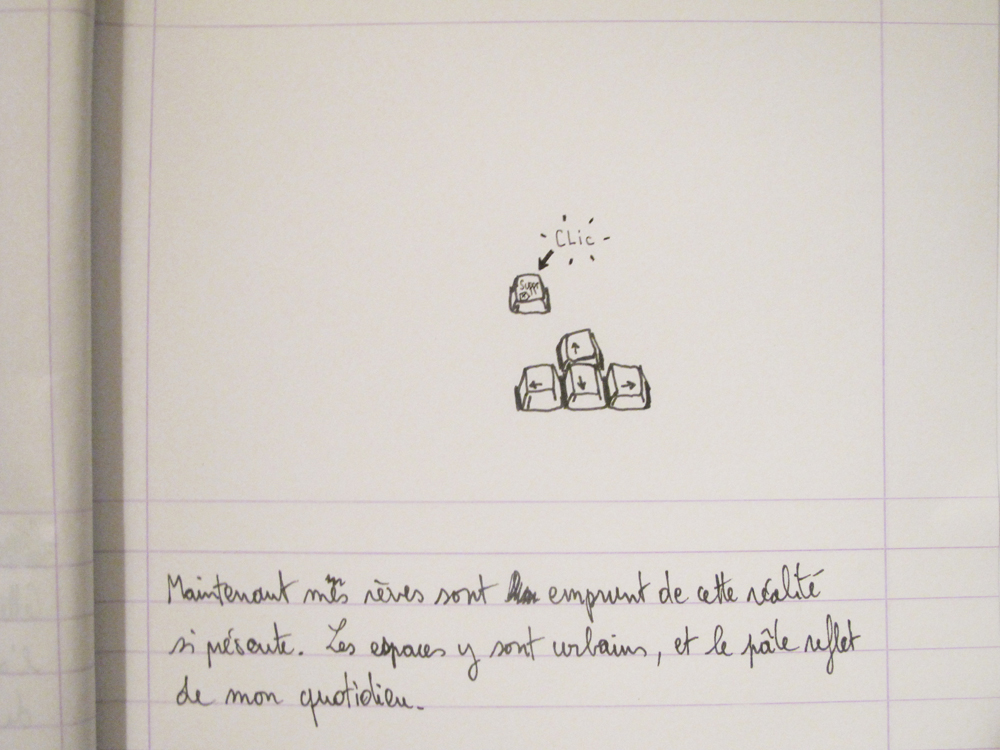 CLic
Suppr
↑
← ↓ →
Maintenant mes rêves sont emprunt de cette réalité
si présente. Les espaces y sont urbains, et le pâle reflet
de mon quotidien.